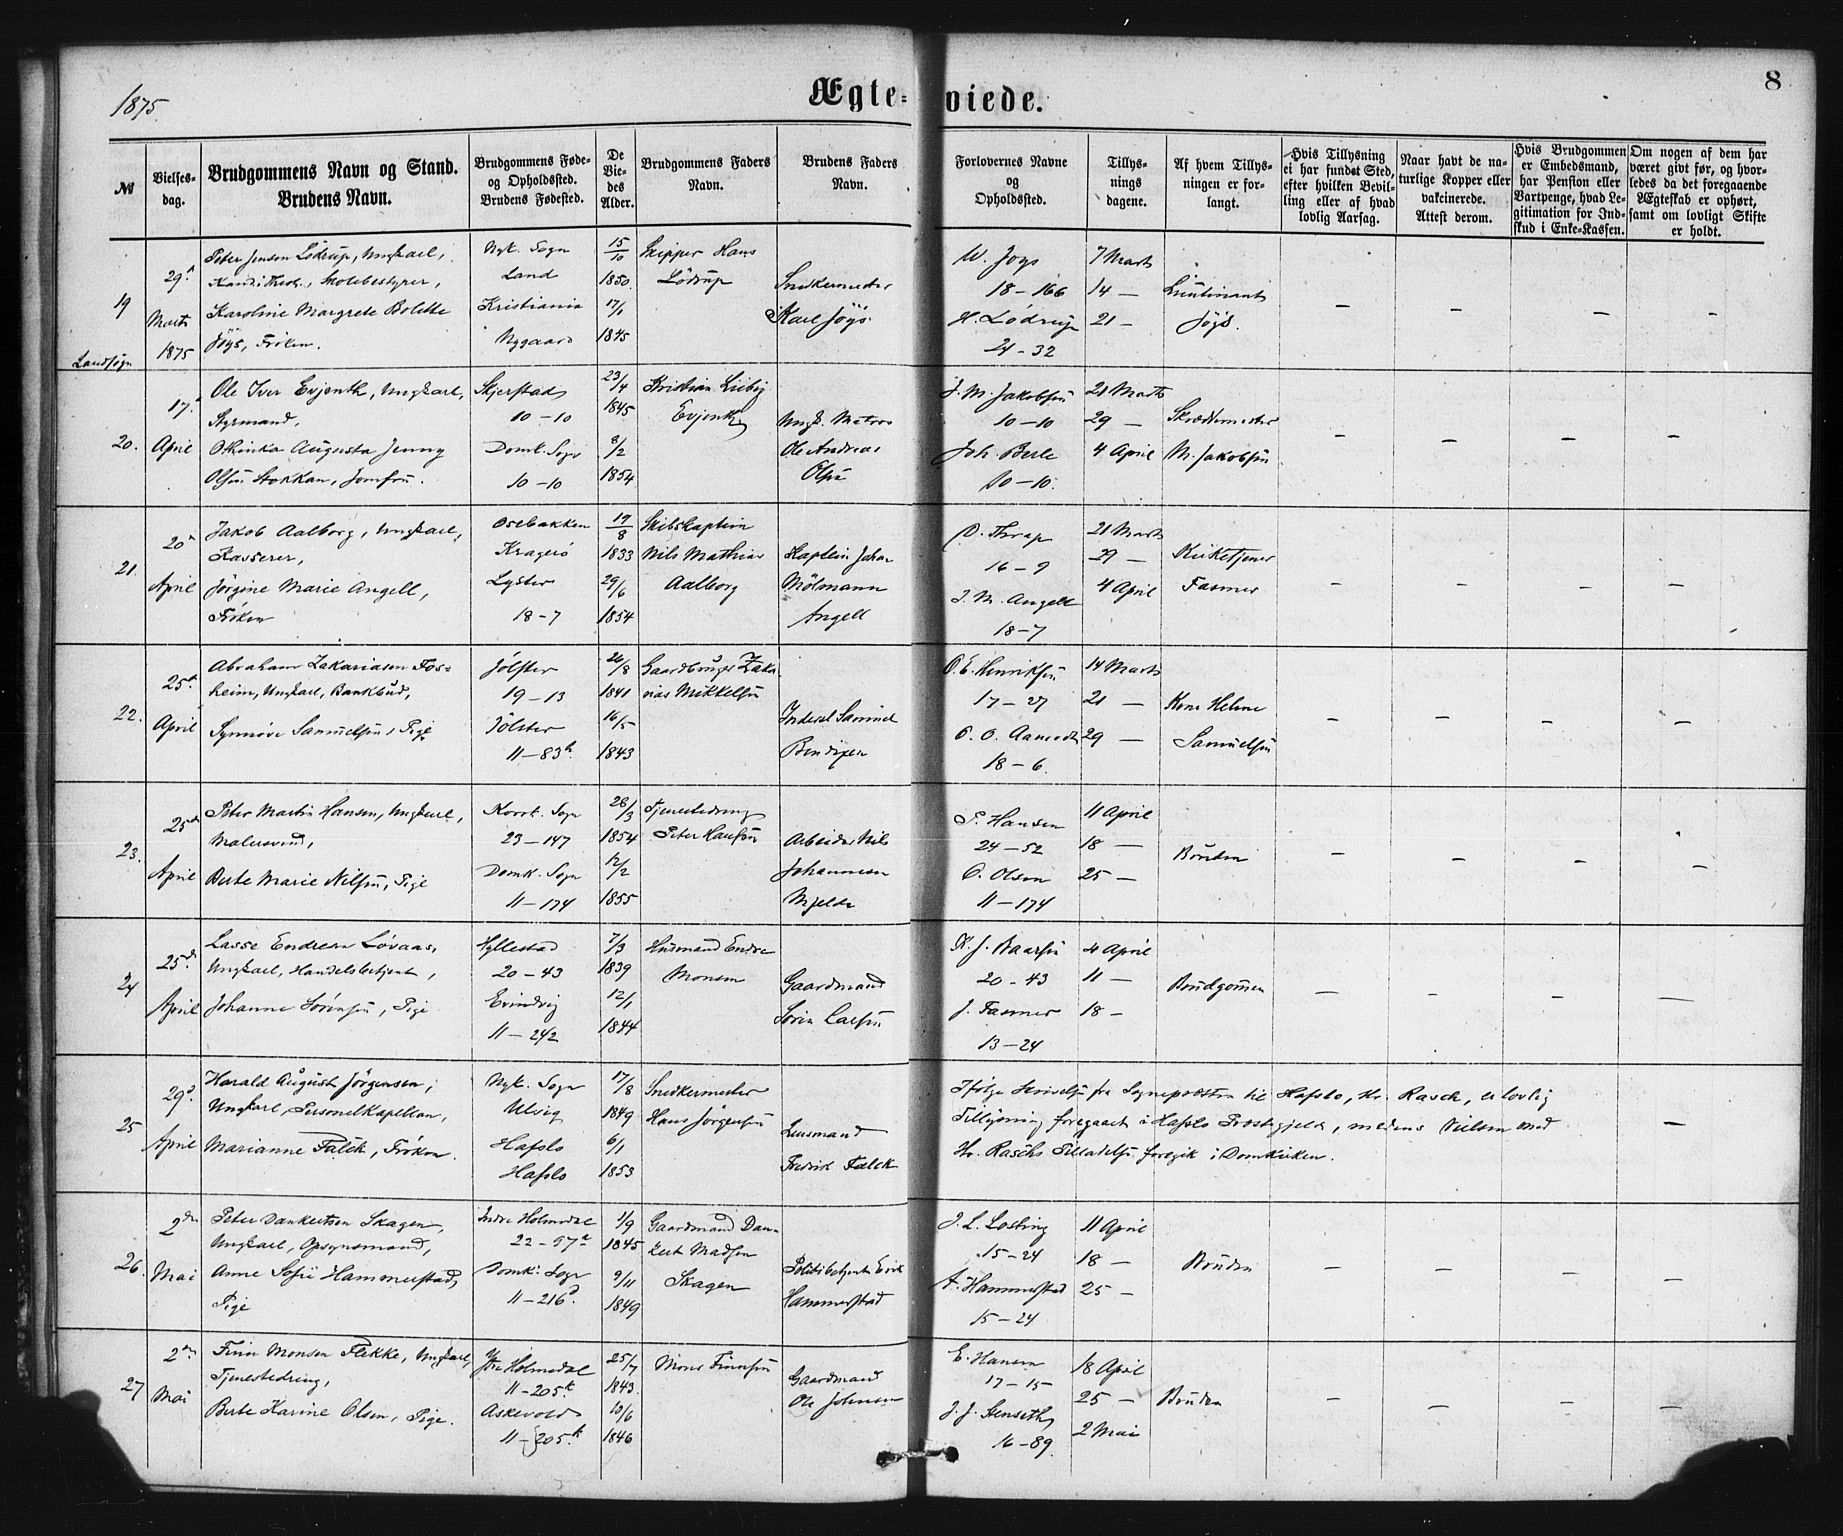 1875.
Ægte-viede.
8
№
Vielses-dag.
Brudgommens Navn og Stand. Brudens Navn.
Brudgommens Føde- og Opholdssted. Brudens Fødested.
De Vie-des Alder.
Brudgommens Faders Navn.
Brudens Faders Navn.
Forlovernes Navne og Opholdsted.
Tillys-nings dagene.
Af hvem Tillys-ningen er for-langt.
Hvis Tillysning ei har fundet Sted, efter hvilken Bevil-ling eller af hvad lovlig Aarsag.
Naar havt de na-turlige Kopper eller vakcinerede. Attest derom.
Hvis Brudgommen er Embedsmand, har Pension eller Vartpenge, hvad Le-gitimation for Ind-skud i Enke-Kassen.
Om nogen af dem har været givt før, og hvor-ledes da det foregaaende Ægteskab er ophørt, samt om lovligt Skifte er holdt.
19
Landsogn
29.
Marts
1875
Peter Jensen Lødrup, Ungkarl,
Skolebestyrer,
Karoline Margrete Bolette
Jøys, Frøken.
Nyk. Sogn
Land
Kristiania
Nygaard
15/10
1850
17/1
1845
Skipper Hans
Lödrup
Snedkermester
Karl Jöys
W. Joys
18-166
H. Lödrup
24-32
7 Marts
14 —
21 —
Lieutinant
Jöys.
20.
17.
April
Ole Iver Evjenth, Ungkarl,
Styrmand,
Othinka Augusta Jenny
Olsen Stokkan, Jomfru.
Skjerstad
10-10
Domk. Sogn
10-10
23/4
1845
8/2
1854
Kristian Liebig
Evjenth
Ungk. Matros
Ole Andreas
Olsen
J. M. Jakobsen
10-10
Joh. Berle
10-10.
21 Marts
29 —
4 April
Skræddermester
M. Jakobsen
21.
20
April
Jakob Aalborg, Ungkarl,
Kasserer,
Jörgine Marie Angell,
Frøken
Osebakken
Kragerö
Lyster
18-7
19/8
1833
29/6
1854
Skibskaptein
Nils Mathias
Aalborg
Kaptein Johan
Mölmann
Angell
D. Thrap
16-9
J. M. Angell
18-7
21 Marts
29 —
4 April
Kirketjener
Fasmer
22.
25
April
Abraham Zakariasen Fos-
heim, Ungkarl, Bankbud,
Synnöve Samuelsen, Pige
Jölster
19-13
Jölster
11-83
26/8
1841
16/5
1843
Gaardbruger Zaka-
rias Mikkelsen
Inderst Samuel
Bendixen
O. E. Henriksen
17-27
O. O. Aamodt
18-6.
14 Marts
21 —
29 —
Kone Helene
Samuelsen
23.
25
April
Peter Martin Hansen, Ungkarl,
Malersvend,
Berte Marie Nilsen, Pige
Korsk. Sogn
23-147
Domk. Sogn
11-174
28/3
1854
12/2
1855
Tjenestedreng
Peter Hansen
Arbeider Nils
Johannesen
Mjelde
P. Hansen
24-52
O. Olsen
11-174
11 April
18 —
25 —
Bruden
24
25
April
Lasse Endresen Lövaas,
Ungkarl, Handelsbetjent,
Johanne Sörensen, Pige
Hyllestad
20-43
Evindvig
11-242
7/3
1839
12/1
1844
Husmand Endre
Monsen
Gaardmand
Sören Larsen
K. J. Baarsen
20-43
J. Fasmer
13-24
4 April
11 —
18 —
Brudgommen
25
29
April
Harald August Jörgensen,
Ungkarl, Personelkapellan,
Marianne Falck, Frøken.
Nyk. Sogn
Ulvig
Hafslo
Hafslo
17/8
1849
6/1
1853
Snedkermester
Hans Jörgensen
Lensmand
Fredrik Falck
Ifølge Skrivelse fra Sognepresten til Hafslo, Hr. Rasch, er lovlig
Tillysning foregaaet i Hafslo Prestegjeld, medens Vielsen med
Hr. Raschs Tilladelse foregik i Domkirken.
26.
2den
Mai
Peter Dankertsen Skagen,
Ungkarl, Opsynsmand,
Anne Sofie Hammerstad,
Pige
Indre Holmedal
22-97
Domk. Sogn
11-216
1/9
1845
9/11
1849
Gaardmand Dan-
kert Madsen
Skagen
Politibetjent Erik
Hammerstad
J. L. Losting
15-24
A. Hammerstad
15-24
11 April
18 —
25 —
Bruden
27
2den
Mai
Finn Monsen Flekke, Ungkarl,
Tjenestedreng,
Berte Karine Olsen, Pige.
Ytre Holmedal
11-205
Askevold
11-205
25/7
1843.
10/6
1846
Mons Finnsen
Gaardmand
Ole Johnsen
E. Hansen
17-15
J. J. Stenseth
16-89.
18 April
25 —
2 Mai
Bruden